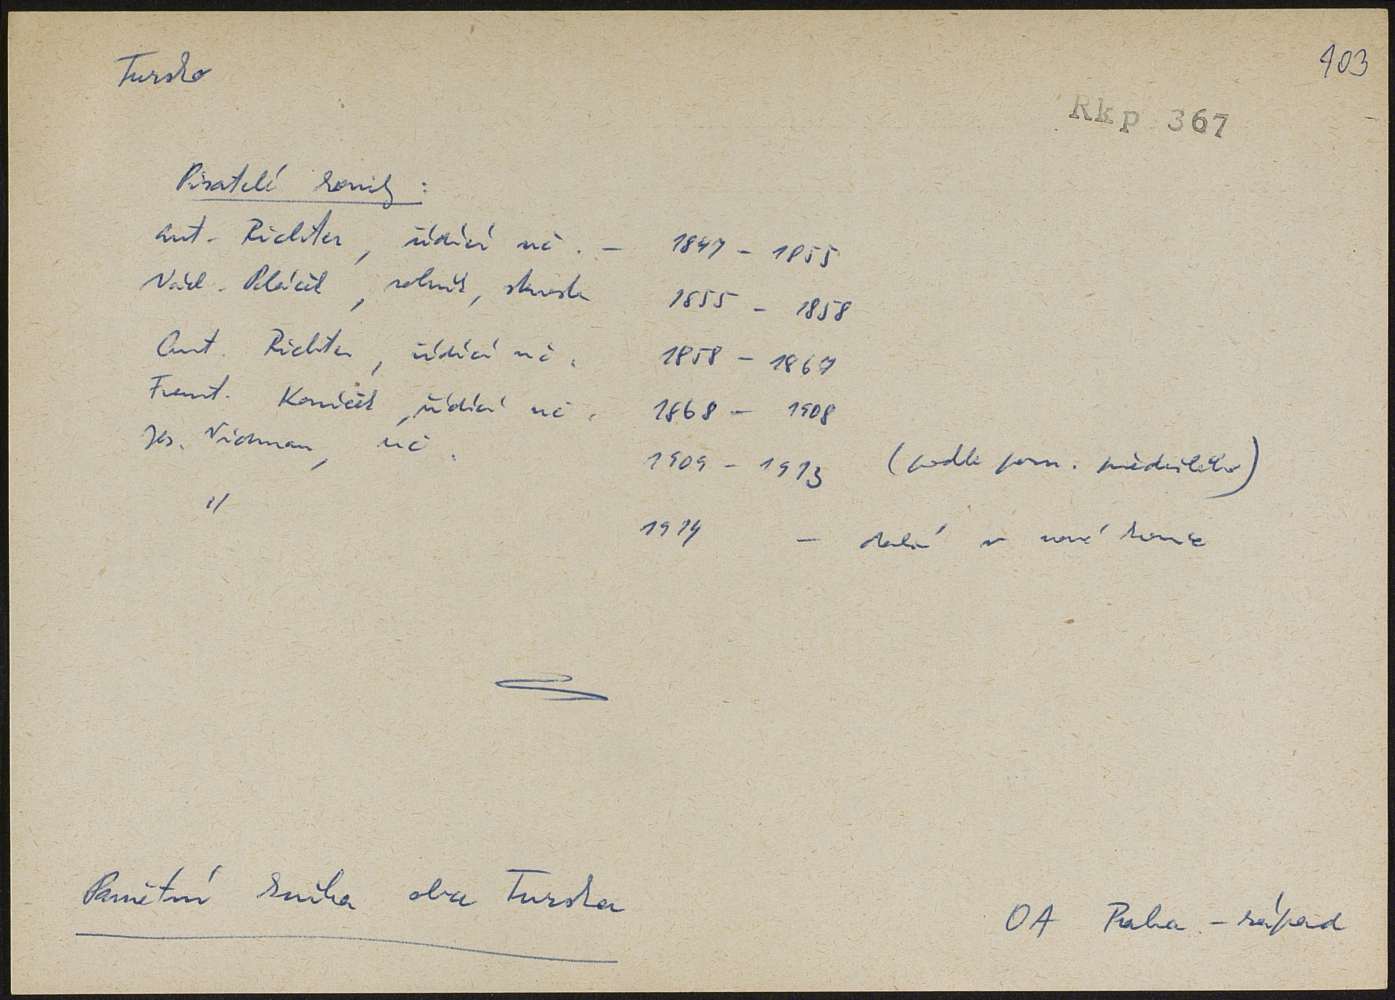 Tursko
403
Rkp 367
Pisatelé kroniky:
Ant. Richter, řídící uč. – 1847 – 1855
Václ. Poláček, rolník, starosta 1855 – 1858
Ant. Richter, řídící uč. 1858 – 1867
Frant. Koníček, řídící uč. 1868 – 1908
Jos. Vichman, uč. 1909 – 1913 (podle pozn. předešlého)
" 1914 – další v nové kronice
Pamětní kniha obce Turska
OA Praha – západ